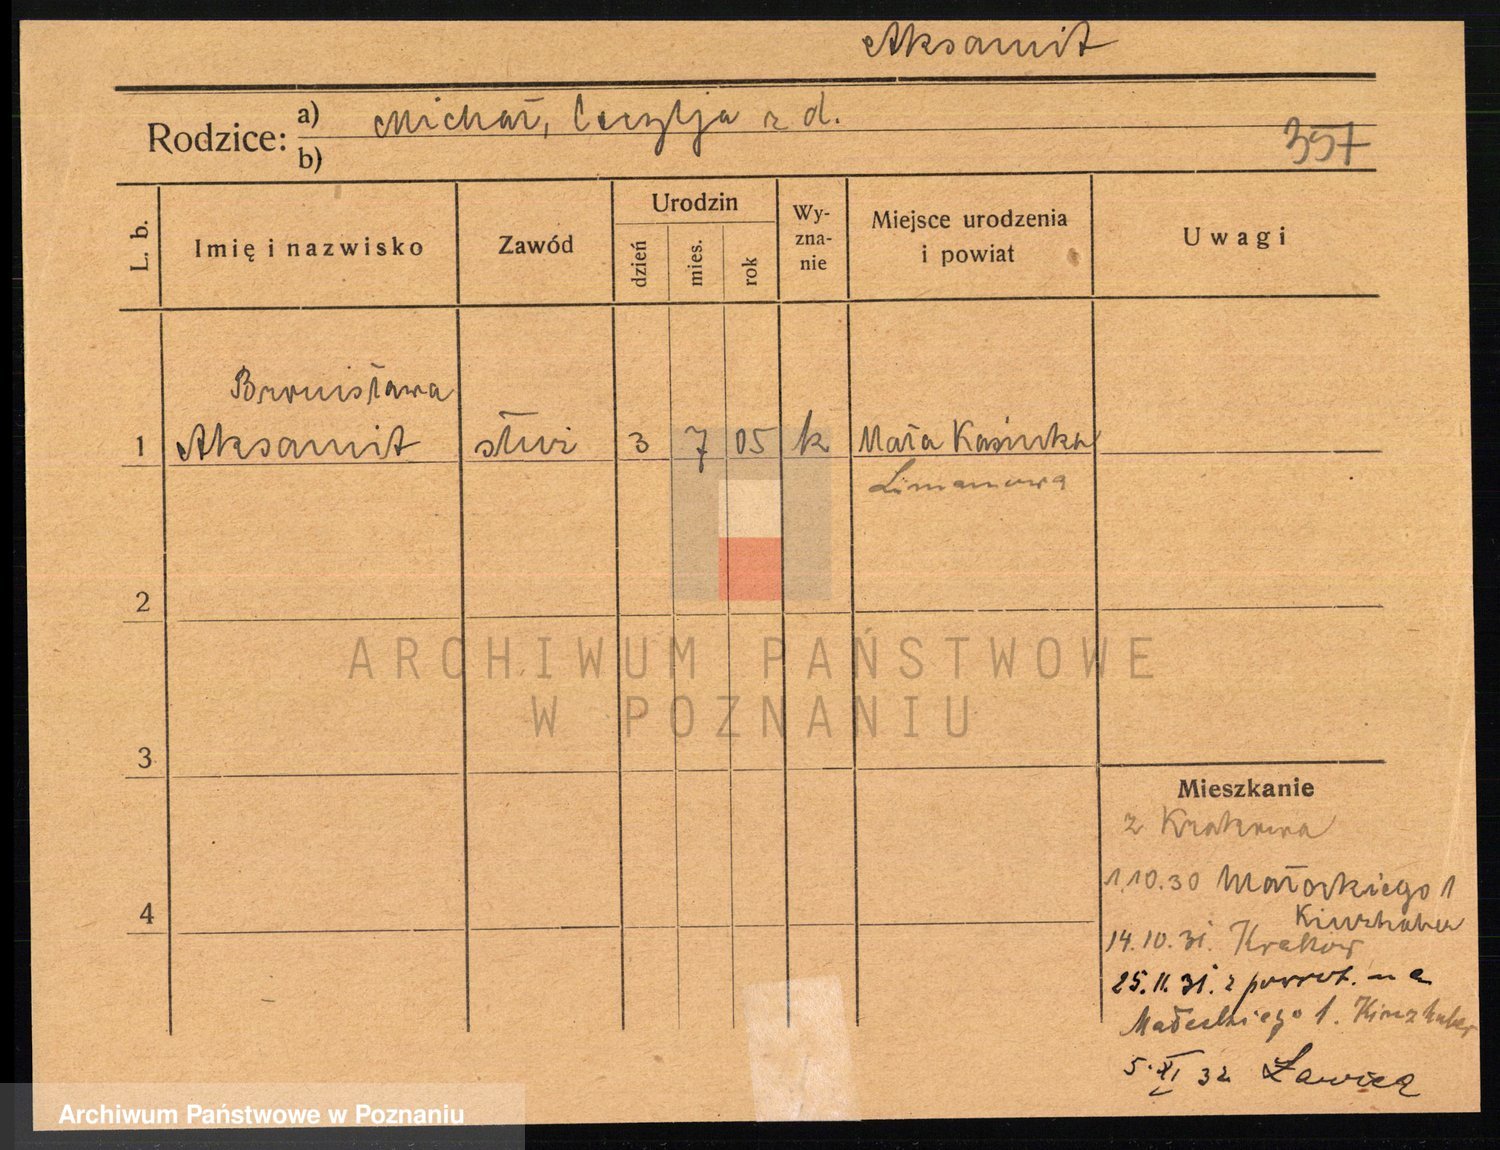 Aksamit
Rodzice: a) Michał, Cecylja z d.
b)
357
L. b.
Imię i nazwisko
Zawód
Urodzin
dzień
mies.
rok
Wy-
zna-
nie
Miejsce urodzenia
i powiat
Uwagi
Bronisława
1 Aksamit służ 3 7 05 k Mała Kasinka
Limanowa
2
ARCHIWUM PAŃSTWOWE
W POZNANIU
3
Mieszkanie
z Krakowa
1.10.30 Małeckiego 1
4
14.10.31. Kraków
25.11.31. z powrot. na
Małeckiego 1.
5.XI 32 Ławica
Archiwum Państwowe w Poznaniu